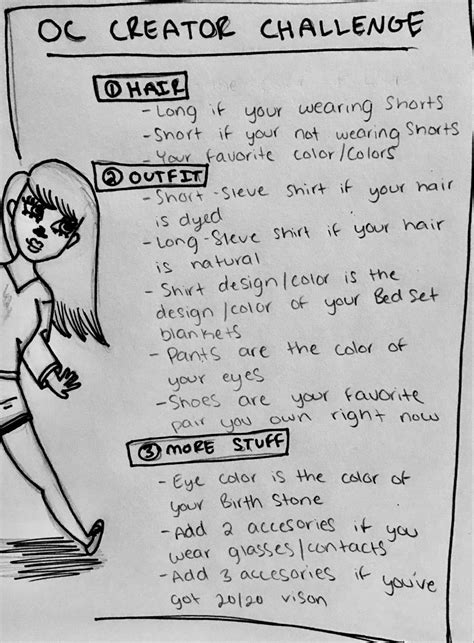 OC CREATOR CHALLENGE
① HAIR
- Long if your wearing Shorts
- Short if your not wearing Shorts
- Your favorite color/Colors
② OUTFIT
- Short-Sleve shirt if your hair
is dyed
- Long-Sleve shirt if your hair
is natural
- Shirt design/color is the
design/color of your Bed Set
blankets
- Pants are the color of
your eyes
- Shoes are your favorite
pair you own right now
③ MORE STUFF
- Eye color is the color of
your Birth Stone
- Add 2 accesories if you
wear glasses/contacts
- Add 3 accesories if you've
got 20/20 vison